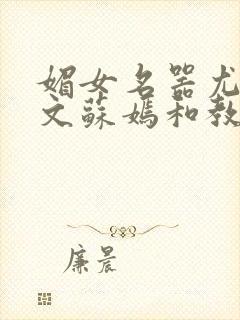 媚女名器尤
文蘇嫣和教
廉晨